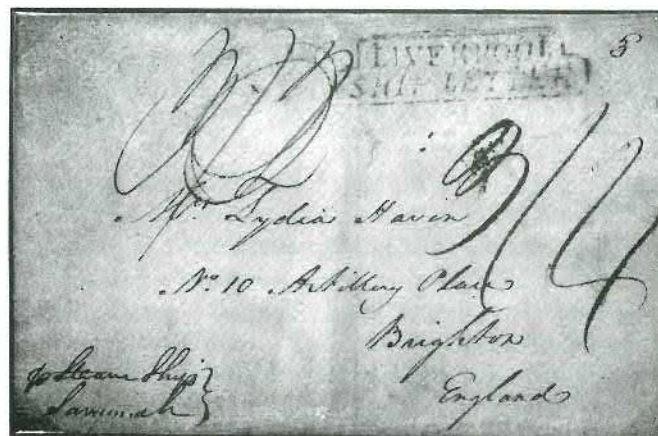 LIVERPOOL
SHIP LETTER
3/4
Mrs Lydia Havin
No. 10 Artillery Place
Brighton
England
p Steam Ship
Savannah